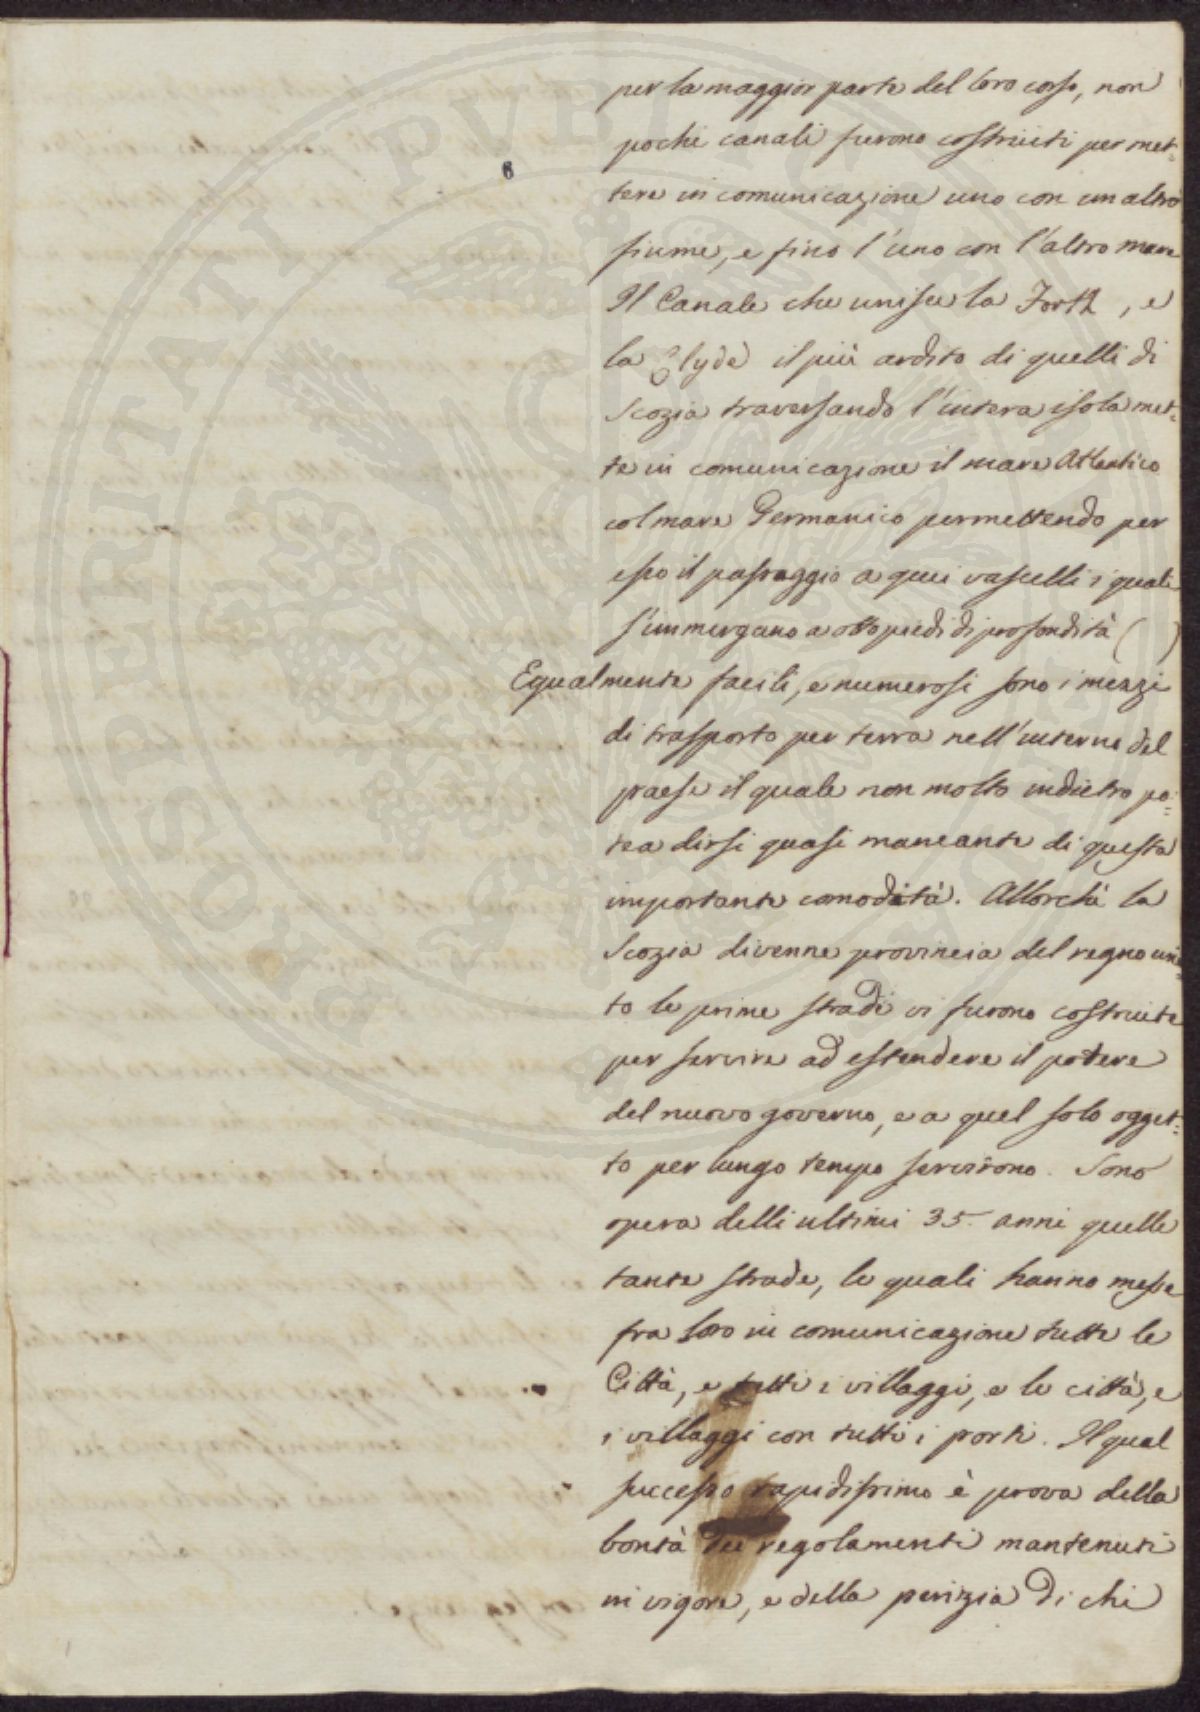 per la maggior parte del loro corso, non
pochi canali furono costruiti per met=
tere in comunicazione uno con un altro
fiume, e fino l'uno con l'altro mare
Il Canale che unisce la Forth, e
la Clyde il più ardito di quelli di
Scozia traversando l'intera isola met=
te in comunicazione il mare Atlantico
col mare Germanico permettendo per
esso il passaggio a quei vascelli i quali
s'immergano a otto piedi di profondità ( )
Equalmente facili, e numerosi sono i mezzi
di trasporto per terra nell'interno del
paese il quale non molto indietro po=
tea dirsi quasi mancante di questa
importante comodità. Allorchè la
Scozia divenne provincia del regno uni=
to le prime strade vi furono costruite
per servire ad estendere il potere
del nuovo governo, e a quel solo ogget=
to per lungo tempo servirono. Sono
opera delli ultimi 35. anni quelle
tante strade, le quali hanno messe
fra loro in comunicazione tutte le
Città, e tutti i villaggi, e le città, e
i villaggi con tutti i porti. Il qual
successo rapidissimo è prova della
bontà dei regolamenti mantenuti
in vigore, e della perizia di chi
PROSPERITATI PVBLICAE